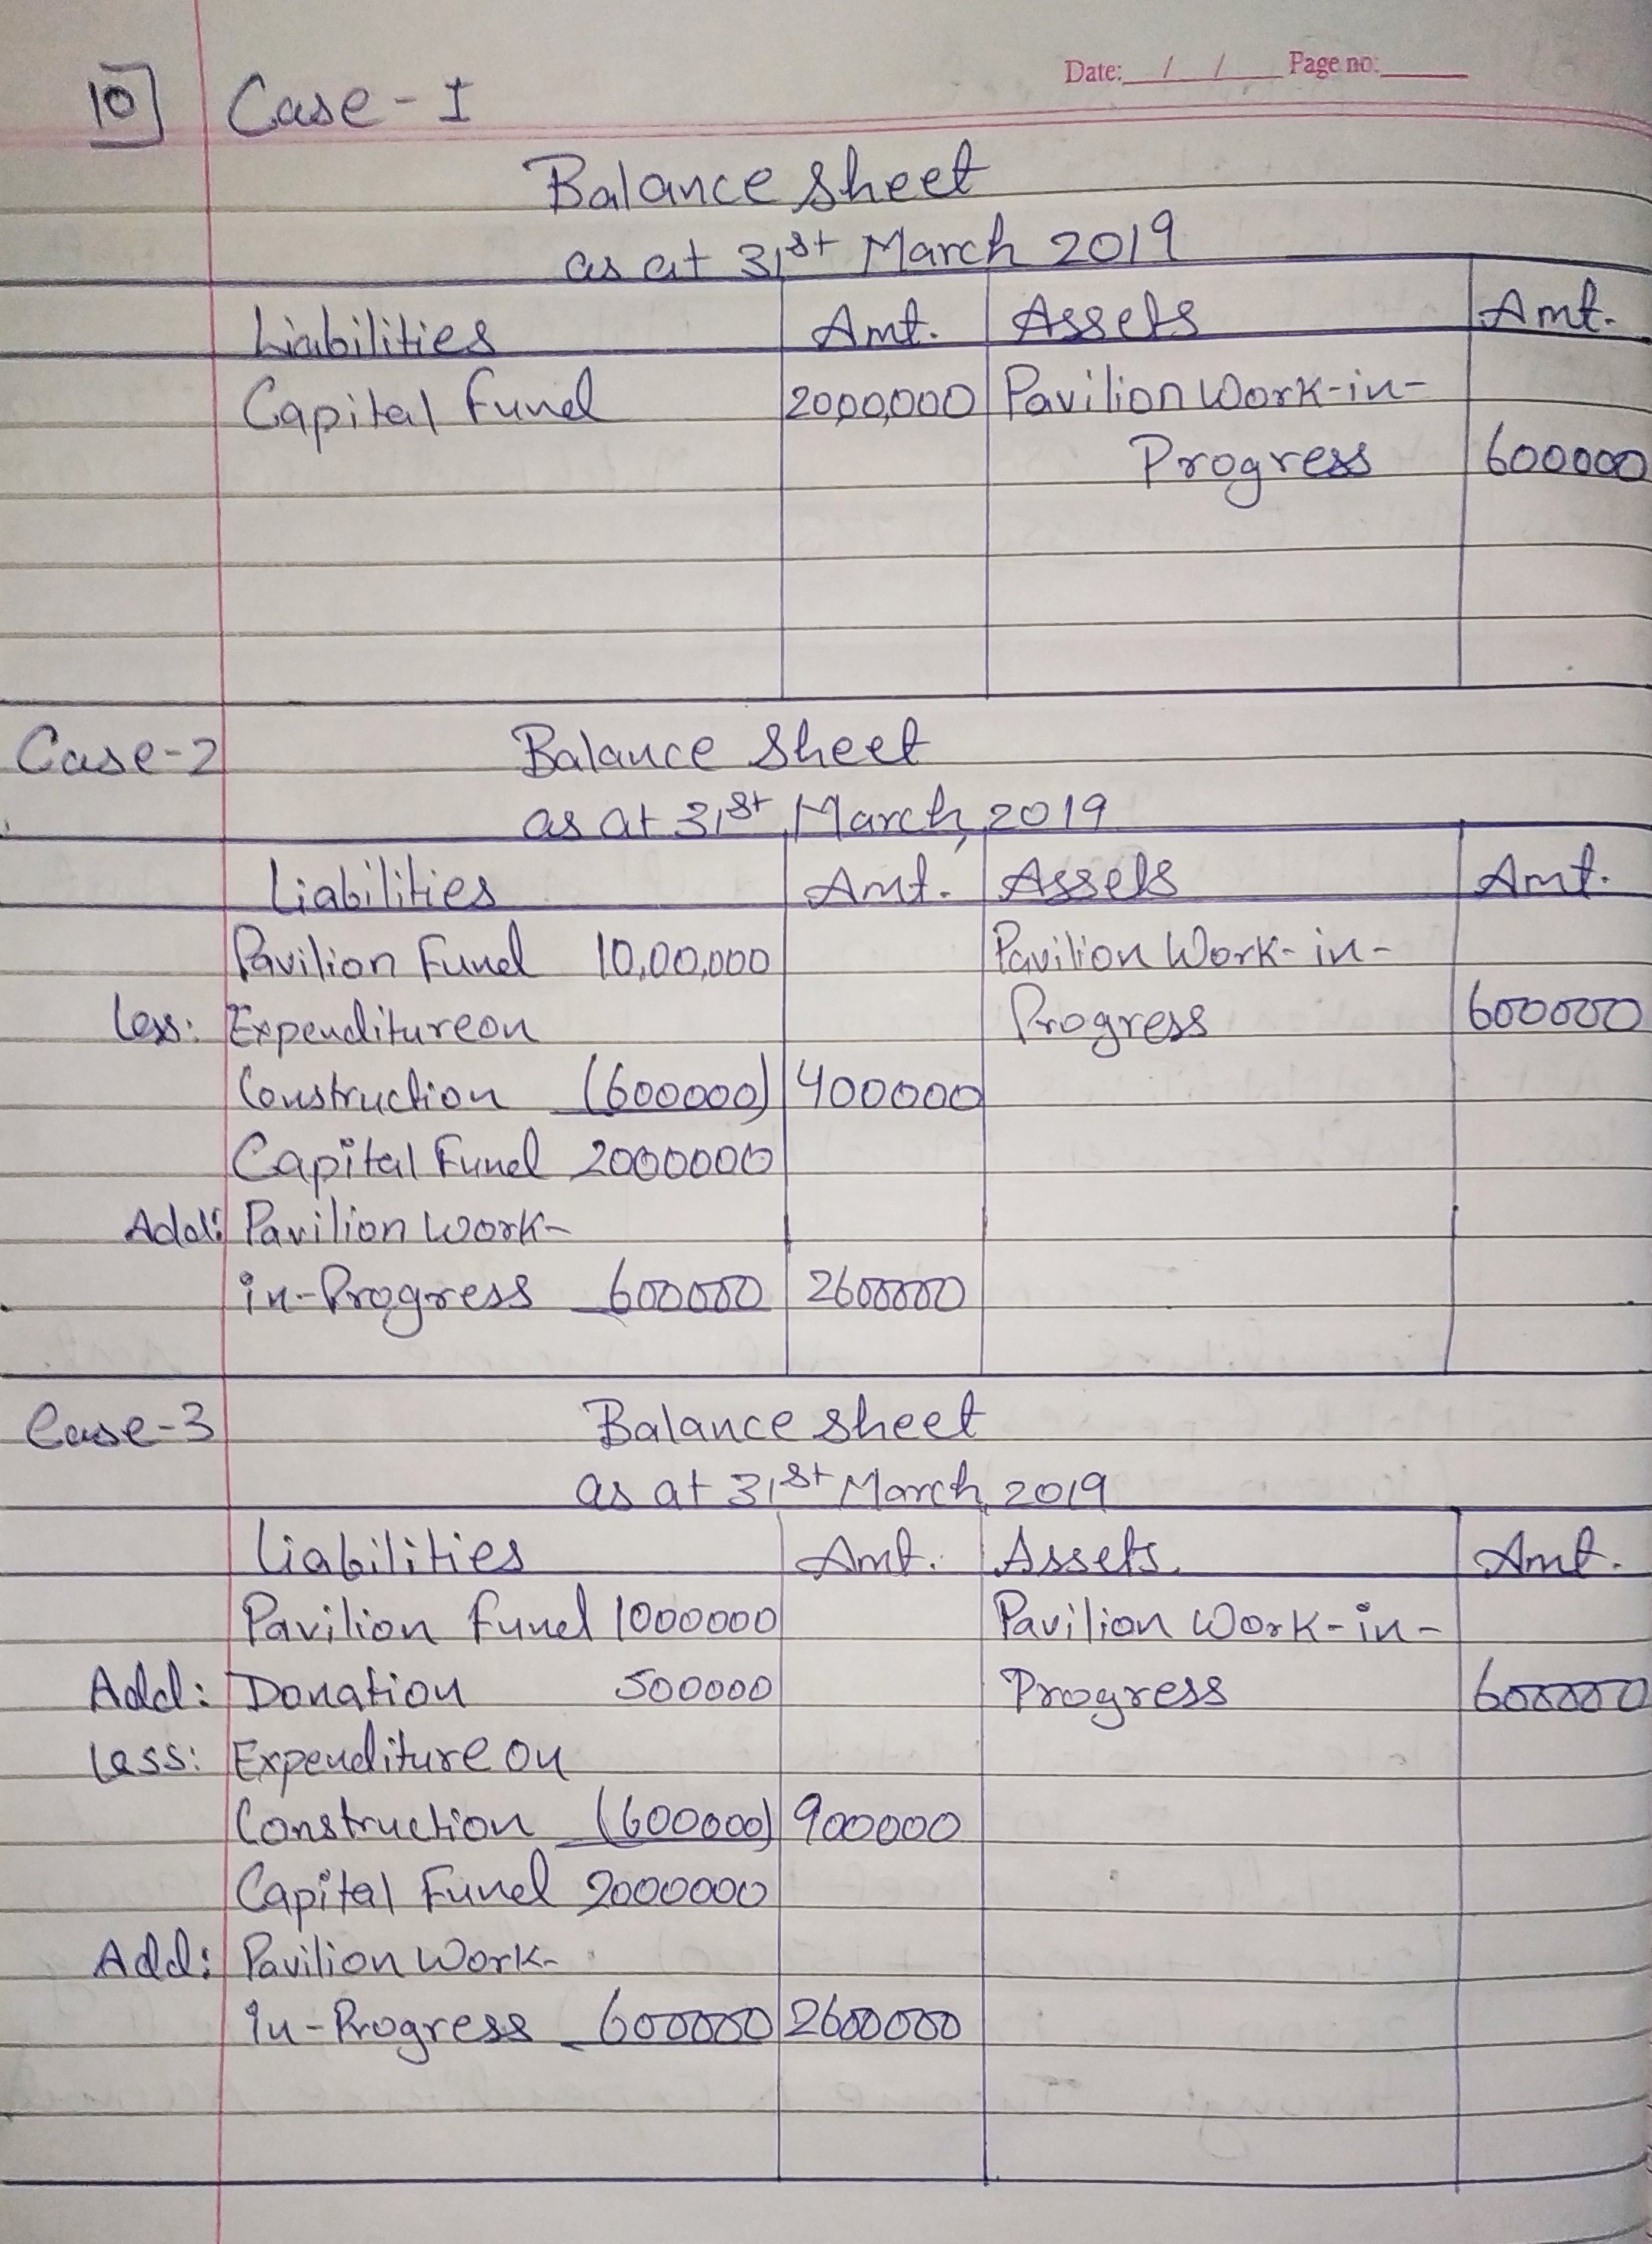 Date: / / Page no:
10 Case-I
Balance sheet
as at 31st March 2019
Liabilities Amt. Assets Amt.
Capital fund 20,00,000 Pavilion Work-in-
Progress 600000
Case-2 Balance Sheet
as at 31st March, 2019
Liabilities Amt. Assets Amt.
Pavilion Fund 10,00,000 Pavilion Work-in-
Less: Expenditure on Progress 600000
Construction (600000) 400000
Capital Fund 2000000
Add: Pavilion Work-
in-Progress 600000 2600000
Case-3 Balance sheet
as at 31st March, 2019
Liabilities Amt. Assets. Amt.
Pavilion Fund 1000000 Pavilion Work-in-
Add: Donation 500000 Progress 600000
Less: Expenditure on
Construction (600000) 900000
Capital Fund 2000000
Add: Pavilion Work-
In-Progress 600000 2600000